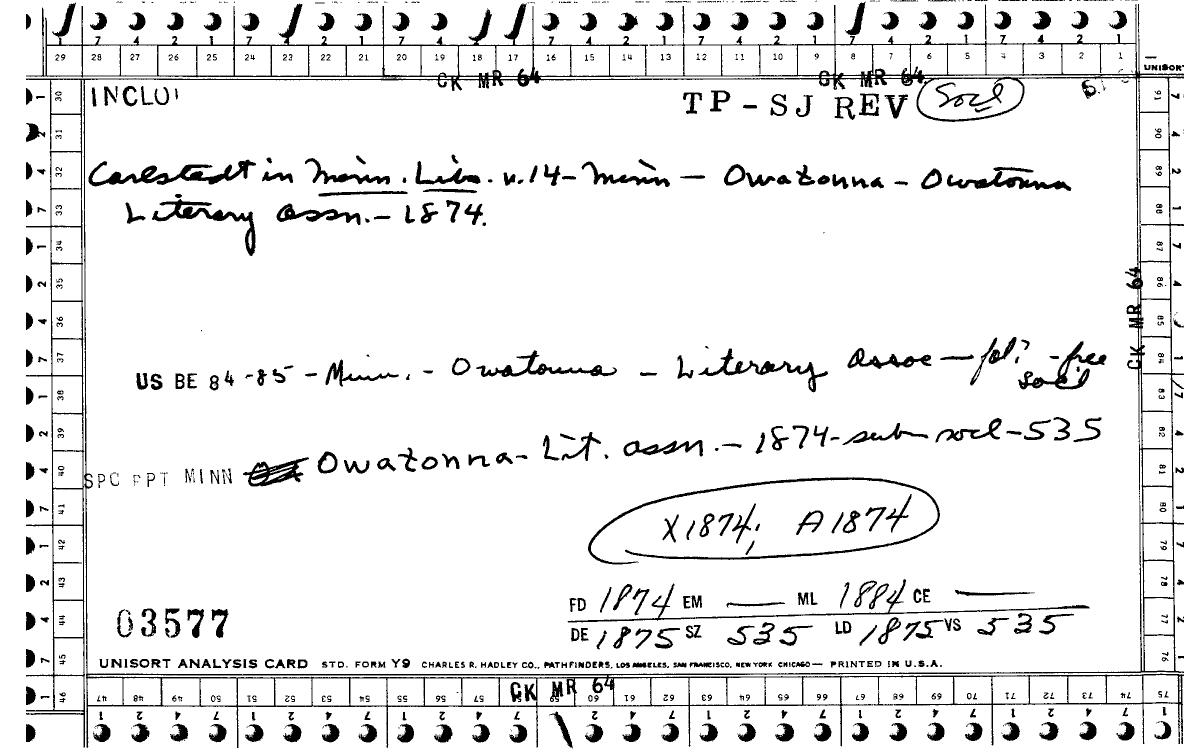 7 4 2 1 7 4 2 1 7 4 2 1 7 4 2 1 7 4 2 1 7 4 2 1 7 4 2 1
29 28 27 26 25 24 23 22 21 20 19 18 17 16 15 14 13 12 11 10 9 8 7 6 5 4 3 2 1
CK MR 64 CK MR 64 UNISORT
INCLU
TP - SJ REV Socl
Carlstedt in Minn. Libs. v.14 - Minn - Owatonna - Owatonna
Literary assn. - 1874.
US BE 84-85 - Minn. - Owatonna - Literary Assoc - fol? - free
socl
SPC RPT MINN Owatonna - Lit. assn. - 1874 - sub socl - 535
X1874; A1874
FD 1874 EM — ML 1884 CE —
DE 1875 SZ 535 LD 1875 VS 535
03577
UNISORT ANALYSIS CARD STD. FORM Y9 CHARLES R. HADLEY CO., PATHFINDERS, LOS ANGELES, SAN FRANCISCO, NEW YORK CHICAGO — PRINTED IN U.S.A.
CK MR 64
30 31 32 33 34 35 36 37 38 39 40 41 42 43 44 45 46
47 48 49 50 51 52 53 54 55 56 57 58 59 60 61 62 63 64 65 66 67 68 69 70 71 72 73 74 75
76 77 78 79 80 81 82 83 84 85 86 87 88 89 90 91
CK MR 64